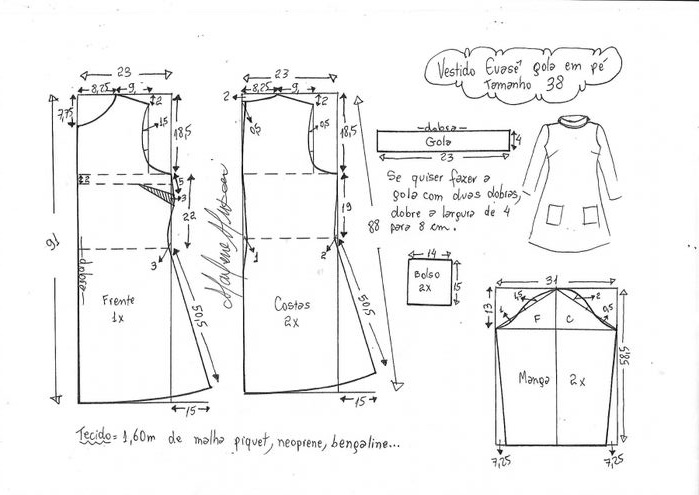 Vestido Evasê gola em pé
Tamanho 38
23
8,25
9,
7,75
2
1,5
18,5
2
5
3
22
3
91
dobra
Frente
1x
50,5
15
23
8,25
9,
2
2
0,5
0,5
18,5
19
88
1
2
Costas
2x
50,5
15
Marlene Mukai
dobra
Gola
4
23
Se quiser fazer a
gola com duas dobras,
dobre a largura de 4
para 8 cm.
14
Bolso
2x
15
31
13
1
1,5
2
0,5
F
C
58,5
Manga 2x
7,25
7,25
Tecido = 1,60m de malha piquet, neoprene, bengaline...